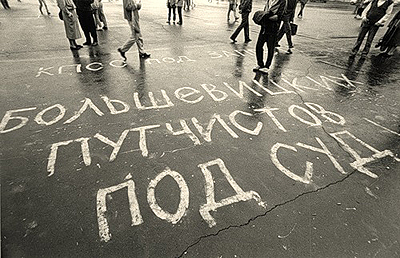 КПСС ПОД
БОЛЬШЕВИЦКИХ
ПУТЧИСТОВ
ПОД СУД